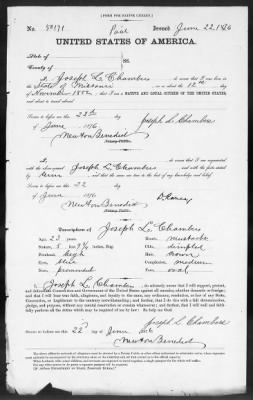 [FORM FOR NATIVE CITIZEN.]
No. Paid Issued June 22, 1876
UNITED STATES OF AMERICA.
State of
County of SS.
I, Joseph L. Chambers, do swear that I was born in
State of Missouri on or about the 12th day
of November 1852, that I am a NATIVE AND LOYAL CITIZEN OF THE UNITED STATES,
and about to travel abroad.
Sworn to before me this day
of June, 1876
Joseph L. Chambers
Newton Benedict
Notary Public.
I, do swear that I am acquainted
with the above-named Joseph L. Chambers and with the facts stated
by him and that the same are true to the best of my knowledge and belief.
Sworn to before me this 22 day
of June 1876
Newton Benedict
Notary Public.
Description of Joseph L. Chambers
Age: 23 years Mouth: mustache
Stature: 5 feet inches Chin: dimpled
Forehead: high Hair: brown
Eyes: blue Complexion: medium
Nose: prominent Face: oval
I, Joseph L. Chambers, do solemnly swear that I will support,
protect, and defend the Constitution and Government of the United States against all enemies, whether domestic or foreign;
and that I will bear true faith, allegiance, and loyalty to the same, any ordinance, resolution, or law of any State,
Convention, or Legislature to the contrary notwithstanding; and further, that I do this with a full determination,
pledge, and purpose, without any mental reservation or evasion whatsoever; and further, that I will well and faithfully
perform all the duties which may be required of me by law: So help me God.
Joseph L. Chambers
Sworn to before me this 22 day of June 1876
Newton Benedict